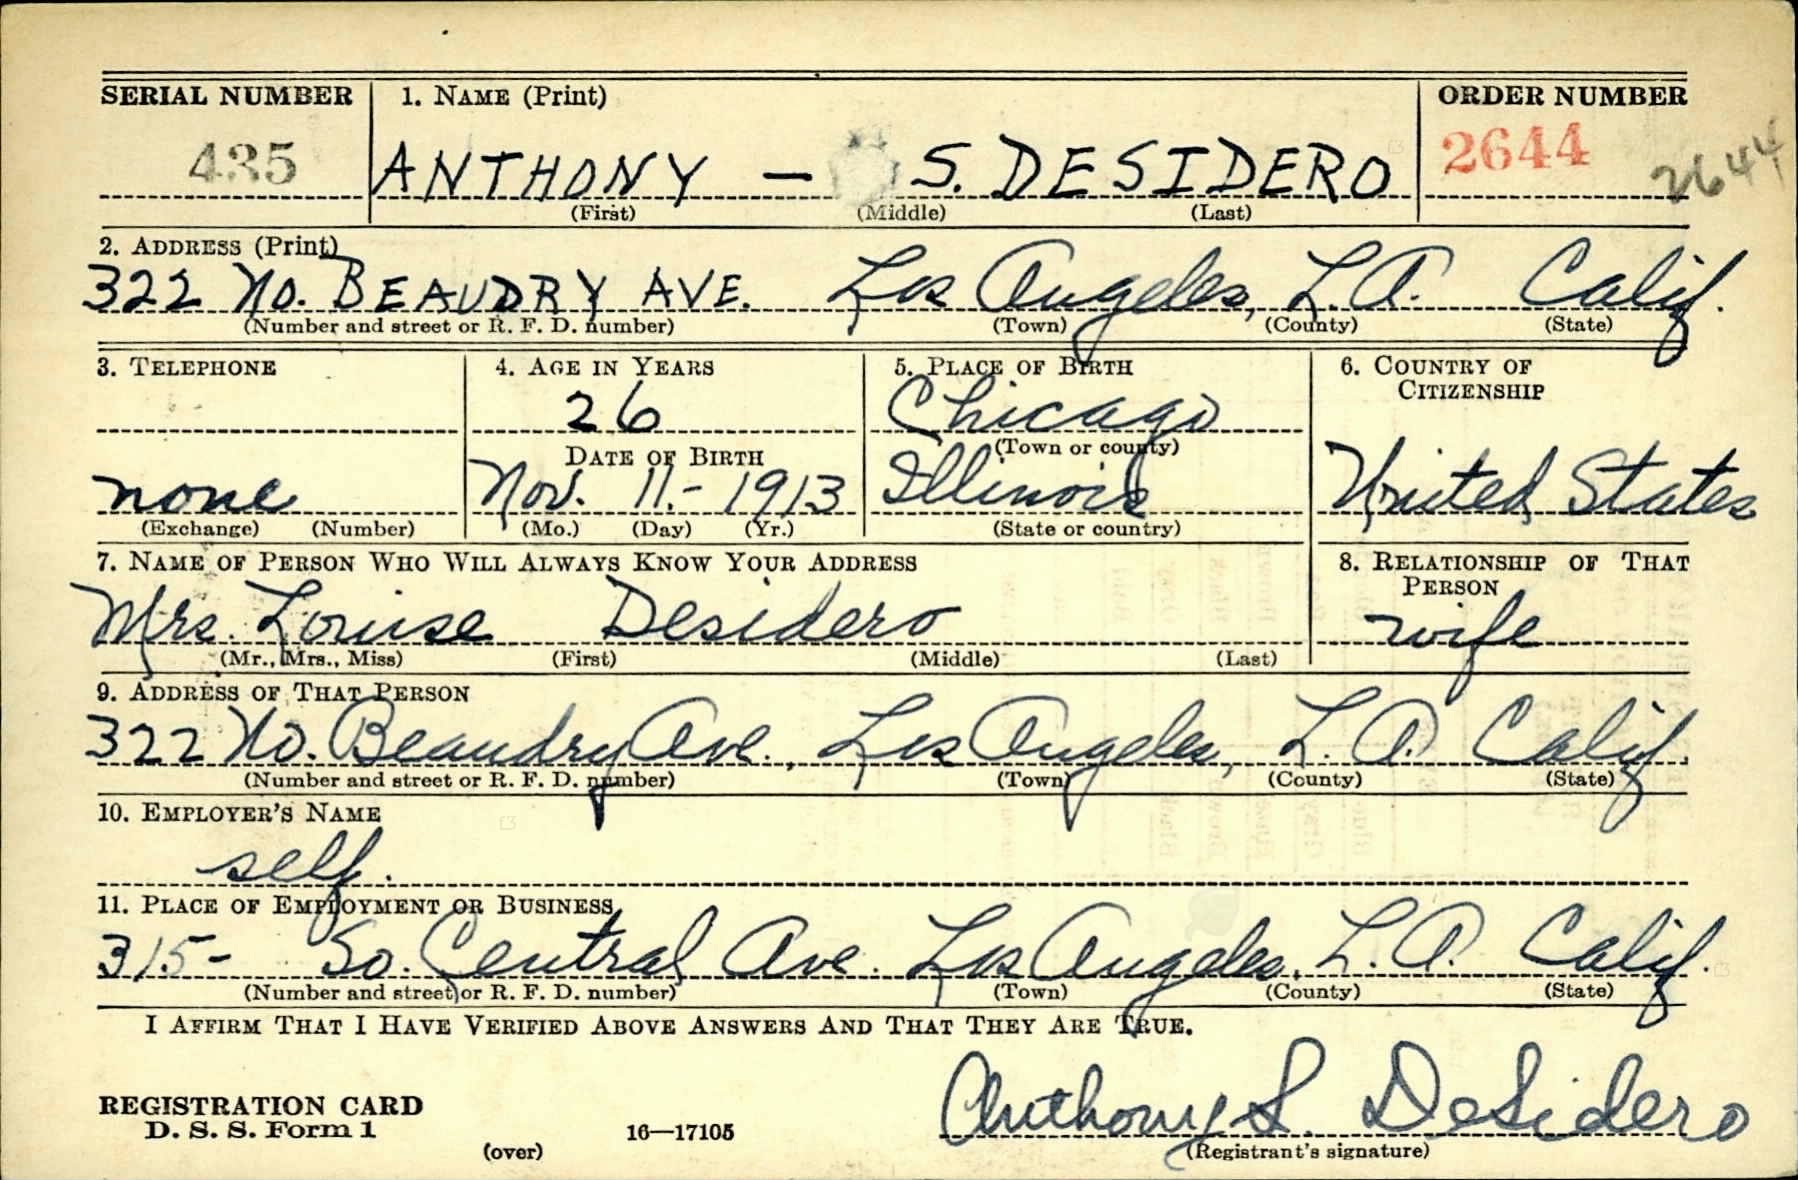 SERIAL NUMBER 1. NAME (Print) ORDER NUMBER
435 ANTHONY — S. DESIDERO 2644 2644
(First) (Middle) (Last)
2. ADDRESS (Print)
322 No. BEAUDRY AVE. Los Angeles, L.A. Calif.
(Number and street or R. F. D. number) (Town) (County) (State)
3. TELEPHONE 4. AGE IN YEARS 5. PLACE OF BIRTH 6. COUNTRY OF
CITIZENSHIP
26 Chicago
(Town or county)
DATE OF BIRTH
none Nov. 11.- 1913 Illinois United States
(Exchange) (Number) (Mo.) (Day) (Yr.) (State or country)
7. NAME OF PERSON WHO WILL ALWAYS KNOW YOUR ADDRESS 8. RELATIONSHIP OF THAT
PERSON
Mrs. Louise Desidero wife
(Mr., Mrs., Miss) (First) (Middle) (Last)
9. ADDRESS OF THAT PERSON
322 No. Beaudry Ave., Los Angeles, L.A. Calif.
(Number and street or R. F. D. number) (Town) (County) (State)
10. EMPLOYER'S NAME
self.
11. PLACE OF EMPLOYMENT OR BUSINESS
315- So. Central Ave. Los Angeles, L.A. Calif.
(Number and street or R. F. D. number) (Town) (County) (State)
I AFFIRM THAT I HAVE VERIFIED ABOVE ANSWERS AND THAT THEY ARE TRUE.
Anthony S. DeSidero
REGISTRATION CARD
D. S. S. Form 1 (over) 16—17105 (Registrant's signature)